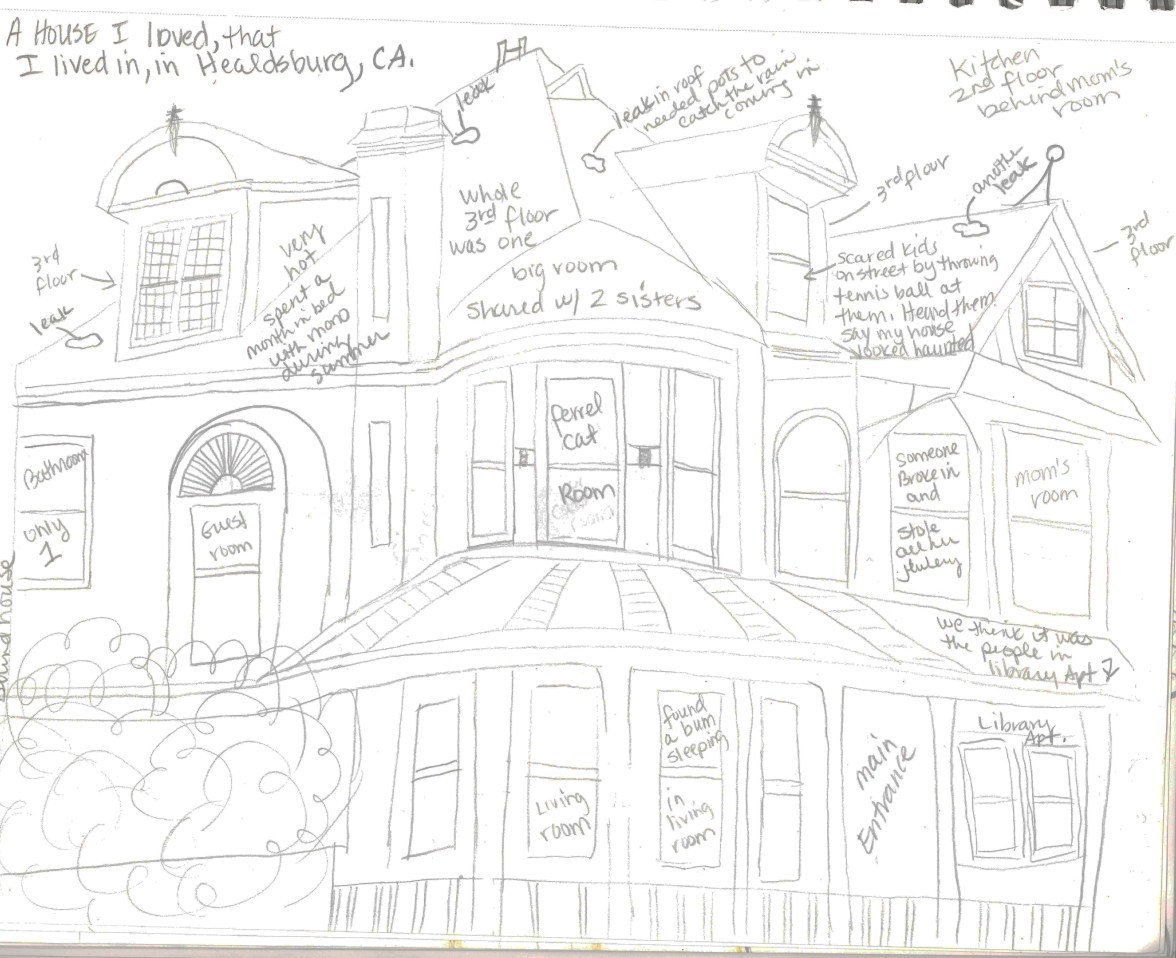 A House I loved, that
I lived in, in Healdsburg, CA.
leak
leak in roof
needed pots to
catch the rain
coming in
Kitchen
2nd floor
behind mom's
room
3rd floor
another
leak
3rd
floor
3rd
floor
leak
very
hot
spent a
month in bed
with mono
during
summer
whole
3rd floor
was one
big room
shared w/ 2 sisters
scared kids
on street by throwing
tennis ball at
them. Heard them
say my house
looked haunted
Bathroom
only
1
Guest
room
ferrel
cat
Room
Someone
Broke in
and
stole
all her
mom's
room
we think it was
the people in
library Apt
house
Living
room
found
a bum
sleeping
in
living
room
main
Entrance
Library
Apt.